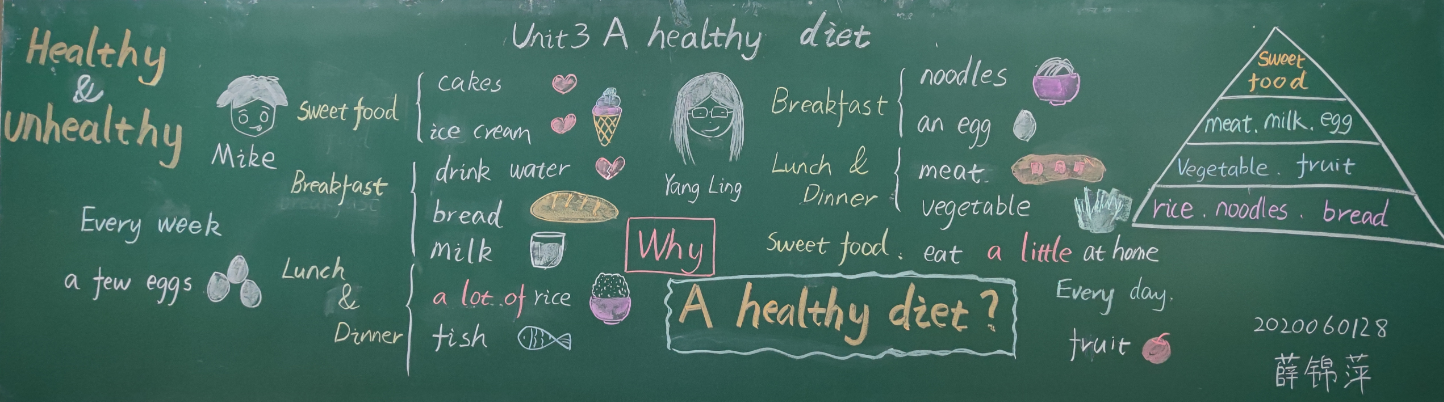 Unit 3 A healthy diet
Healthy
&
unhealthy
Mike
Sweet food
cakes
ice cream
Breakfast
drink water
bread
milk
Every week
a few eggs
Lunch
&
Dinner
a lot of rice
fish
Yang Ling
Why
A healthy diet?
Breakfast
noodles
an egg
Lunch &
Dinner
meat
vegetable
Sweet food. eat a little at home
Every day.
fruit
Sweet
food
meat. milk. egg
Vegetable. fruit
rice. noodles. bread
2020060128
薛锦萍